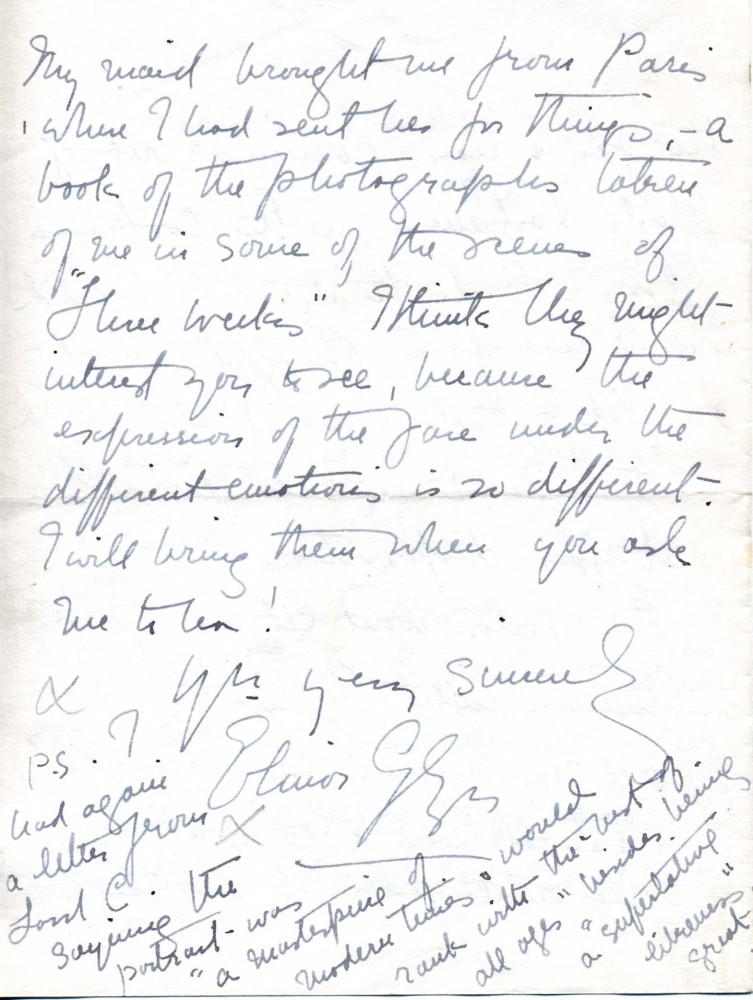 My maid brought me from Paris
where I had sent her for things, - a
book of the photographs taken
of me in some of the scenes of
"Three Weeks" I think they might
interest you to see, because the
expression of the face under the
different emotions is so different -
I will bring them when you ask
me to tea!
Yrs very Sincerely
Elinor Glyn
P.S. I
had again
a letter from
Lord C. saying the
portrait was
"a masterpiece of
modern times" would
rank with the best of
all ages" besides being
a "superlative
likeness"
great